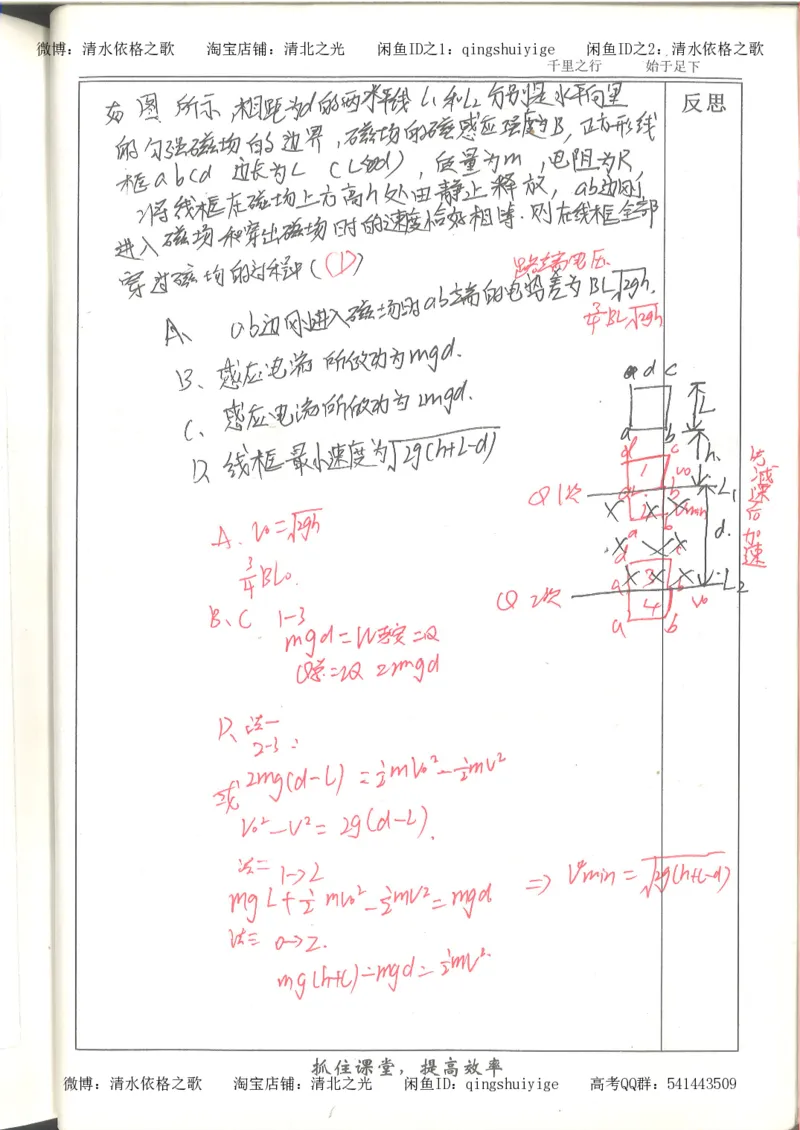 微博：清水依格之歌 淘宝店铺：清北之光 闲鱼ID之1：qingshuiyige 闲鱼ID之2：清水依格之歌
千里之行 始于足下
反思
如图所示,相距为d的两水平线L1和L2分别是水平向里
的匀强磁场的边界,磁场的磁感应强度为B,正方形线
框abcd边长为L(L<d),质量为m,电阻为R,
将线框在磁场上方高h处由静止释放,ab边刚
进入磁场和穿出磁场时的速度恰好相等.则在线框全部
穿过磁场的过程中(D)
路端电压
A、ab边刚进入磁场时ab两端的电势差为BL√2gh.
3/4BL√2gh
B、感应电流所做功为mgd.
C、感应电流所做功为2mgd.
D、线框最小速度为√2g(h+L-d)
d c
L
a b
h
d c
1 v0
a b L1
Q 1次
2 vmin
a b
d.
d c
3
a b L2
Q 2次
4 v0
a b
先减速后加速
A. v0=√2gh
3/4BLv0
B、C 1-3
mgd=W安=Q
Q总=2Q=2mgd
D、法一
2-3:
mg(d-L)=½mv0²-½mv²
或
v0²-v²=2g(d-L).
法二 1→2
mgL+½mv0²-½mv²=mgd ⇒ vmin=√2g(h+L-d)
法三 0→2.
mg(h+L)-mgd=½mv².
抓住课堂，提高效率
微博：清水依格之歌 淘宝店铺：清北之光 闲鱼ID：qingshuiyige 高考QQ群：541443509